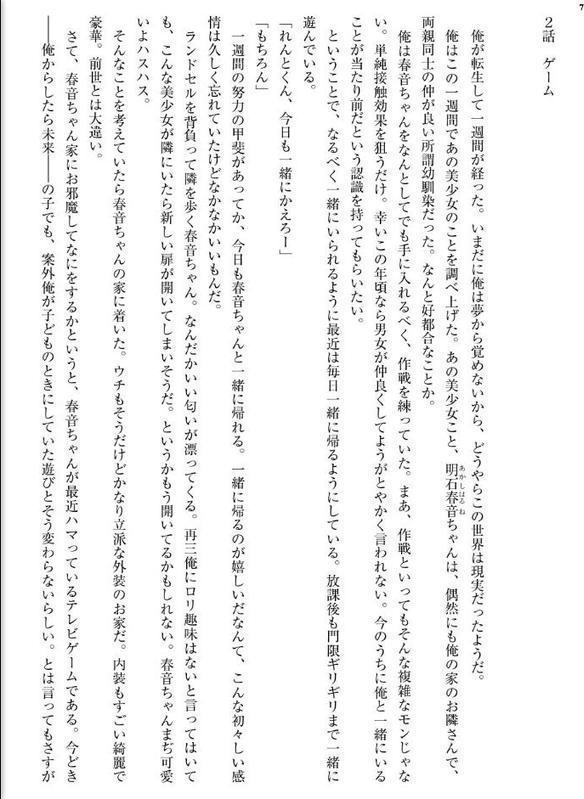 7
2話　ゲーム
俺が転生して一週間が経った。いまだに俺は夢から覚めないから、どうやらこの世界は現実だったようだ。
俺はこの一週間であの美少女のことを調べ上げた。あの美少女こと、明石春音ちゃんは、偶然にも俺の家のお隣さんで、
あかしはるね
両親同士の仲が良い所謂幼馴染だった。なんと好都合なことか。
俺は春音ちゃんをなんとしてでも手に入れるべく、作戦を練っていた。まあ、作戦といってもそんな複雑なモンじゃな
い。単純接触効果を狙うだけ。幸いこの年頃なら男女が仲良くしてようがとやかく言われない。今のうちに俺と一緒にいる
ことが当たり前だという認識を持ってもらいたい。
ということで、なるべく一緒にいられるように最近は毎日一緒に帰るようにしている。放課後も門限ギリギリまで一緒に
遊んでいる。
「れんとくん、今日も一緒にかえろー」
「もちろん」
一週間の努力の甲斐があってか、今日も春音ちゃんと一緒に帰れる。一緒に帰るのが嬉しいだなんて、こんな初々しい感
情は久しく忘れていたけどなかなかいいもんだ。
ランドセルを背負って隣を歩く春音ちゃん。なんだかいい匂いが漂ってくる。再三俺にロリ趣味はないと言ってはいて
も、こんな美少女が隣にいたら新しい扉が開いてしまいそうだ。というかもう開いてるかもしれない。春音ちゃんまぢ可愛
いよハスハス。
そんなことを考えていたら春音ちゃんの家に着いた。ウチもそうだけどかなり立派な外装のお家だ。内装もすごい綺麗で
豪華。前世とは大違い。
さて、春音ちゃん家にお邪魔してなにをするかというと、春音ちゃんが最近ハマっているテレビゲームである。今どき
――俺からしたら未来――の子でも、案外俺が子どものときにしていた遊びとそう変わらないらしい。とは言ってもさすが